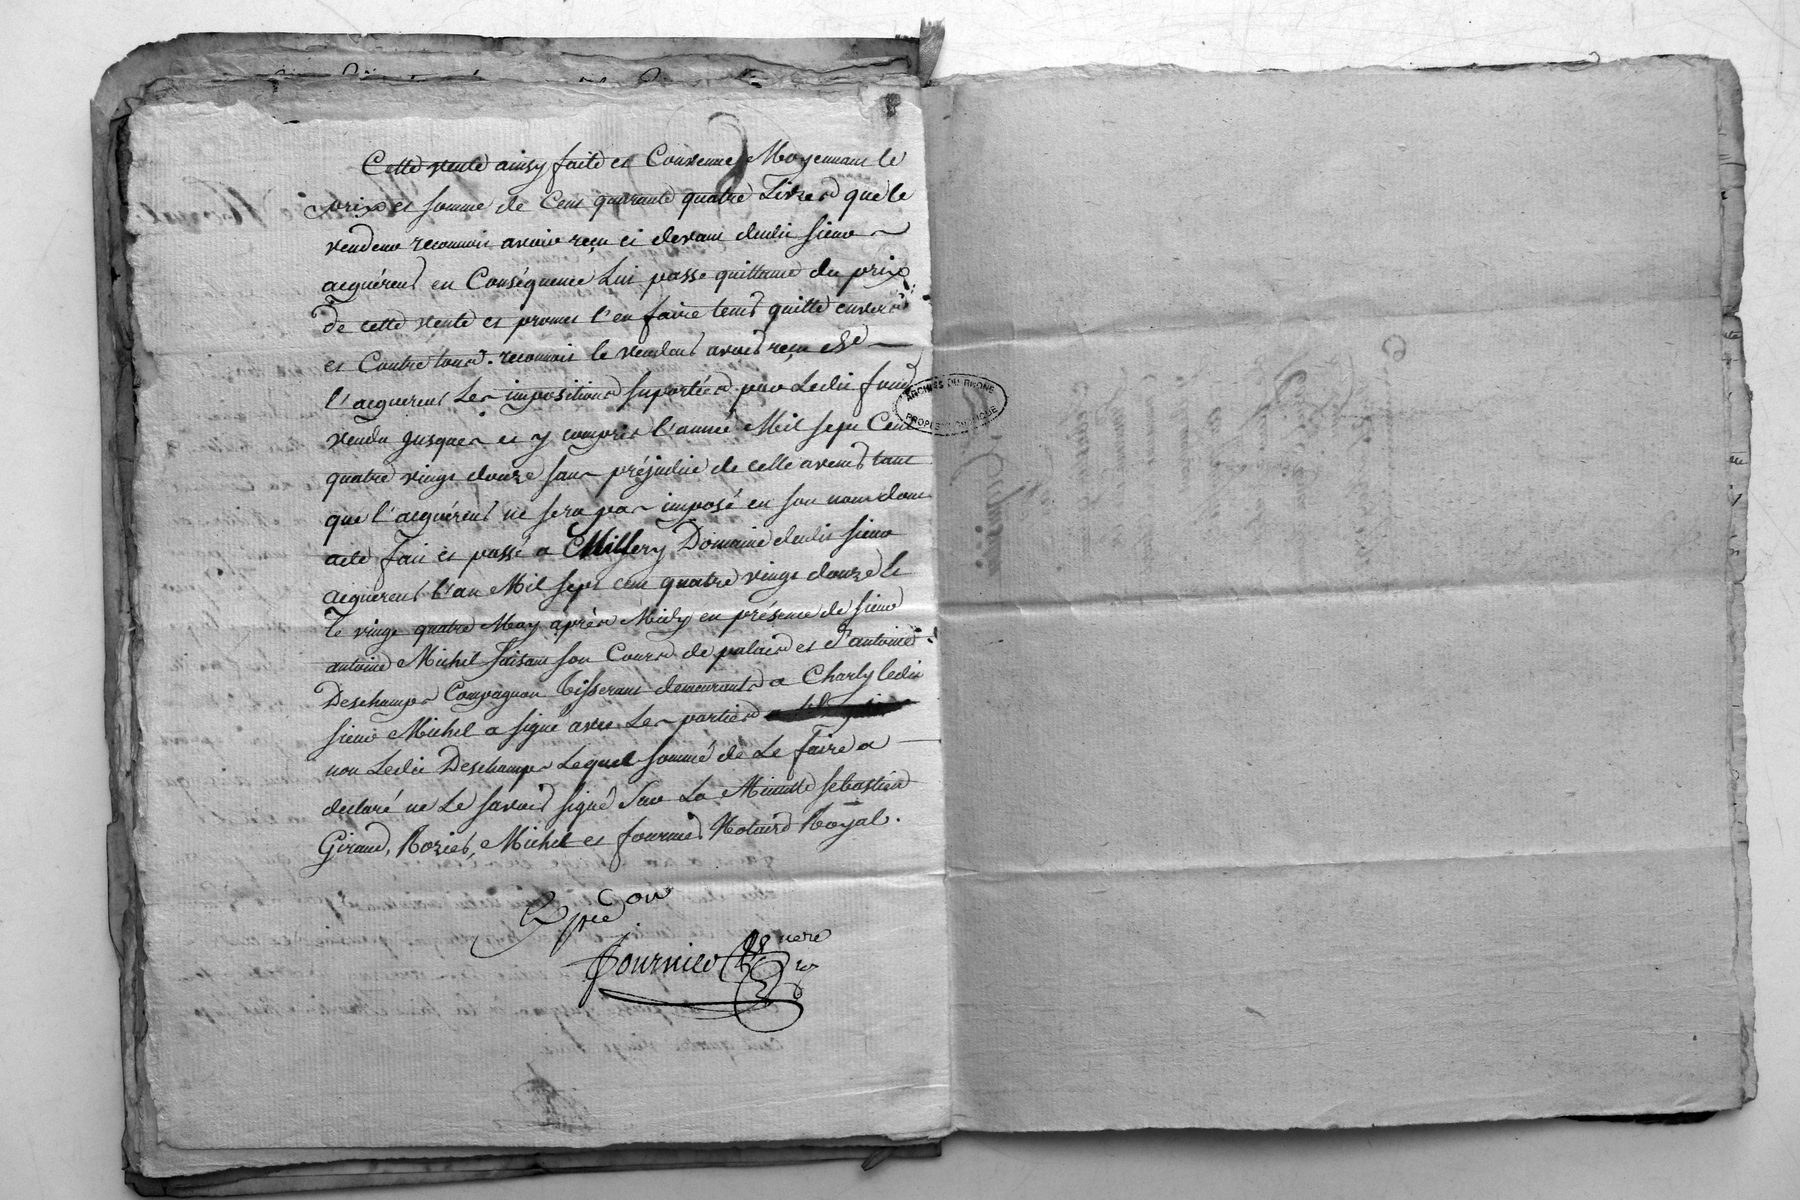 Cette vente ainsy faite et Convenue Moyennant le
prix et somme de Cent quarante quatre Livres que le
vendeur reconnoit avoir reçu ci devant dudit sieur
acquéreur en Conséquence Lui passe quittance du prix
de cette vente et promet l'en faire tenir quitte envers
et Contre tous. reconnoit le vendeur avoir reçu de
l'acquereur Les impositions suportées par Ledit fond
vendu jusques et y compris l'année Mil sept Cent
quatre vingt douze sans préjudice de celle avenir tant
que l'acquéreur ne sera pas imposé en son nom dont
acte fait et passé a Millery Domaine dudit sieur
acquereur l'an Mil sept cent quatre vingt douze le
Le vingt quatre May après Midy en présence de sieur
antoine Michel faisant son Cours de palais et d'antoine
Deschamps Compagnon tisserant demeurants a Charly ledit
sieur Michel a signé avec Les parties
non Ledit Deschamps Lequel sommé de Le faire a
declaré ne Le savoir signé Sur La Minutte sebastien
Giraud, Rozier, Michel et fournier Notaire Royal.
Expe.on
Fournier
ARCHIVES DU RHONE
PROPRIÉTÉ PUBLIQUE